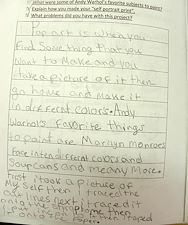 What were some of Andy Warhol's favorite subjects to paint?
Explain how you made your "self portrait print".
What problems did you have with this project?
Pop art is when you
find Some thing that you
want to Make and you
take a picture of it then
go home and make it
in different colors. Andy
Warhol's Favorite things
to paint are Marriyn monroes
face in ten different colors and
Soup cans and meany More.
First I took a picture of
My self then I traced the
out lines next I traced it
onto
then I taped
it onto a Paper.